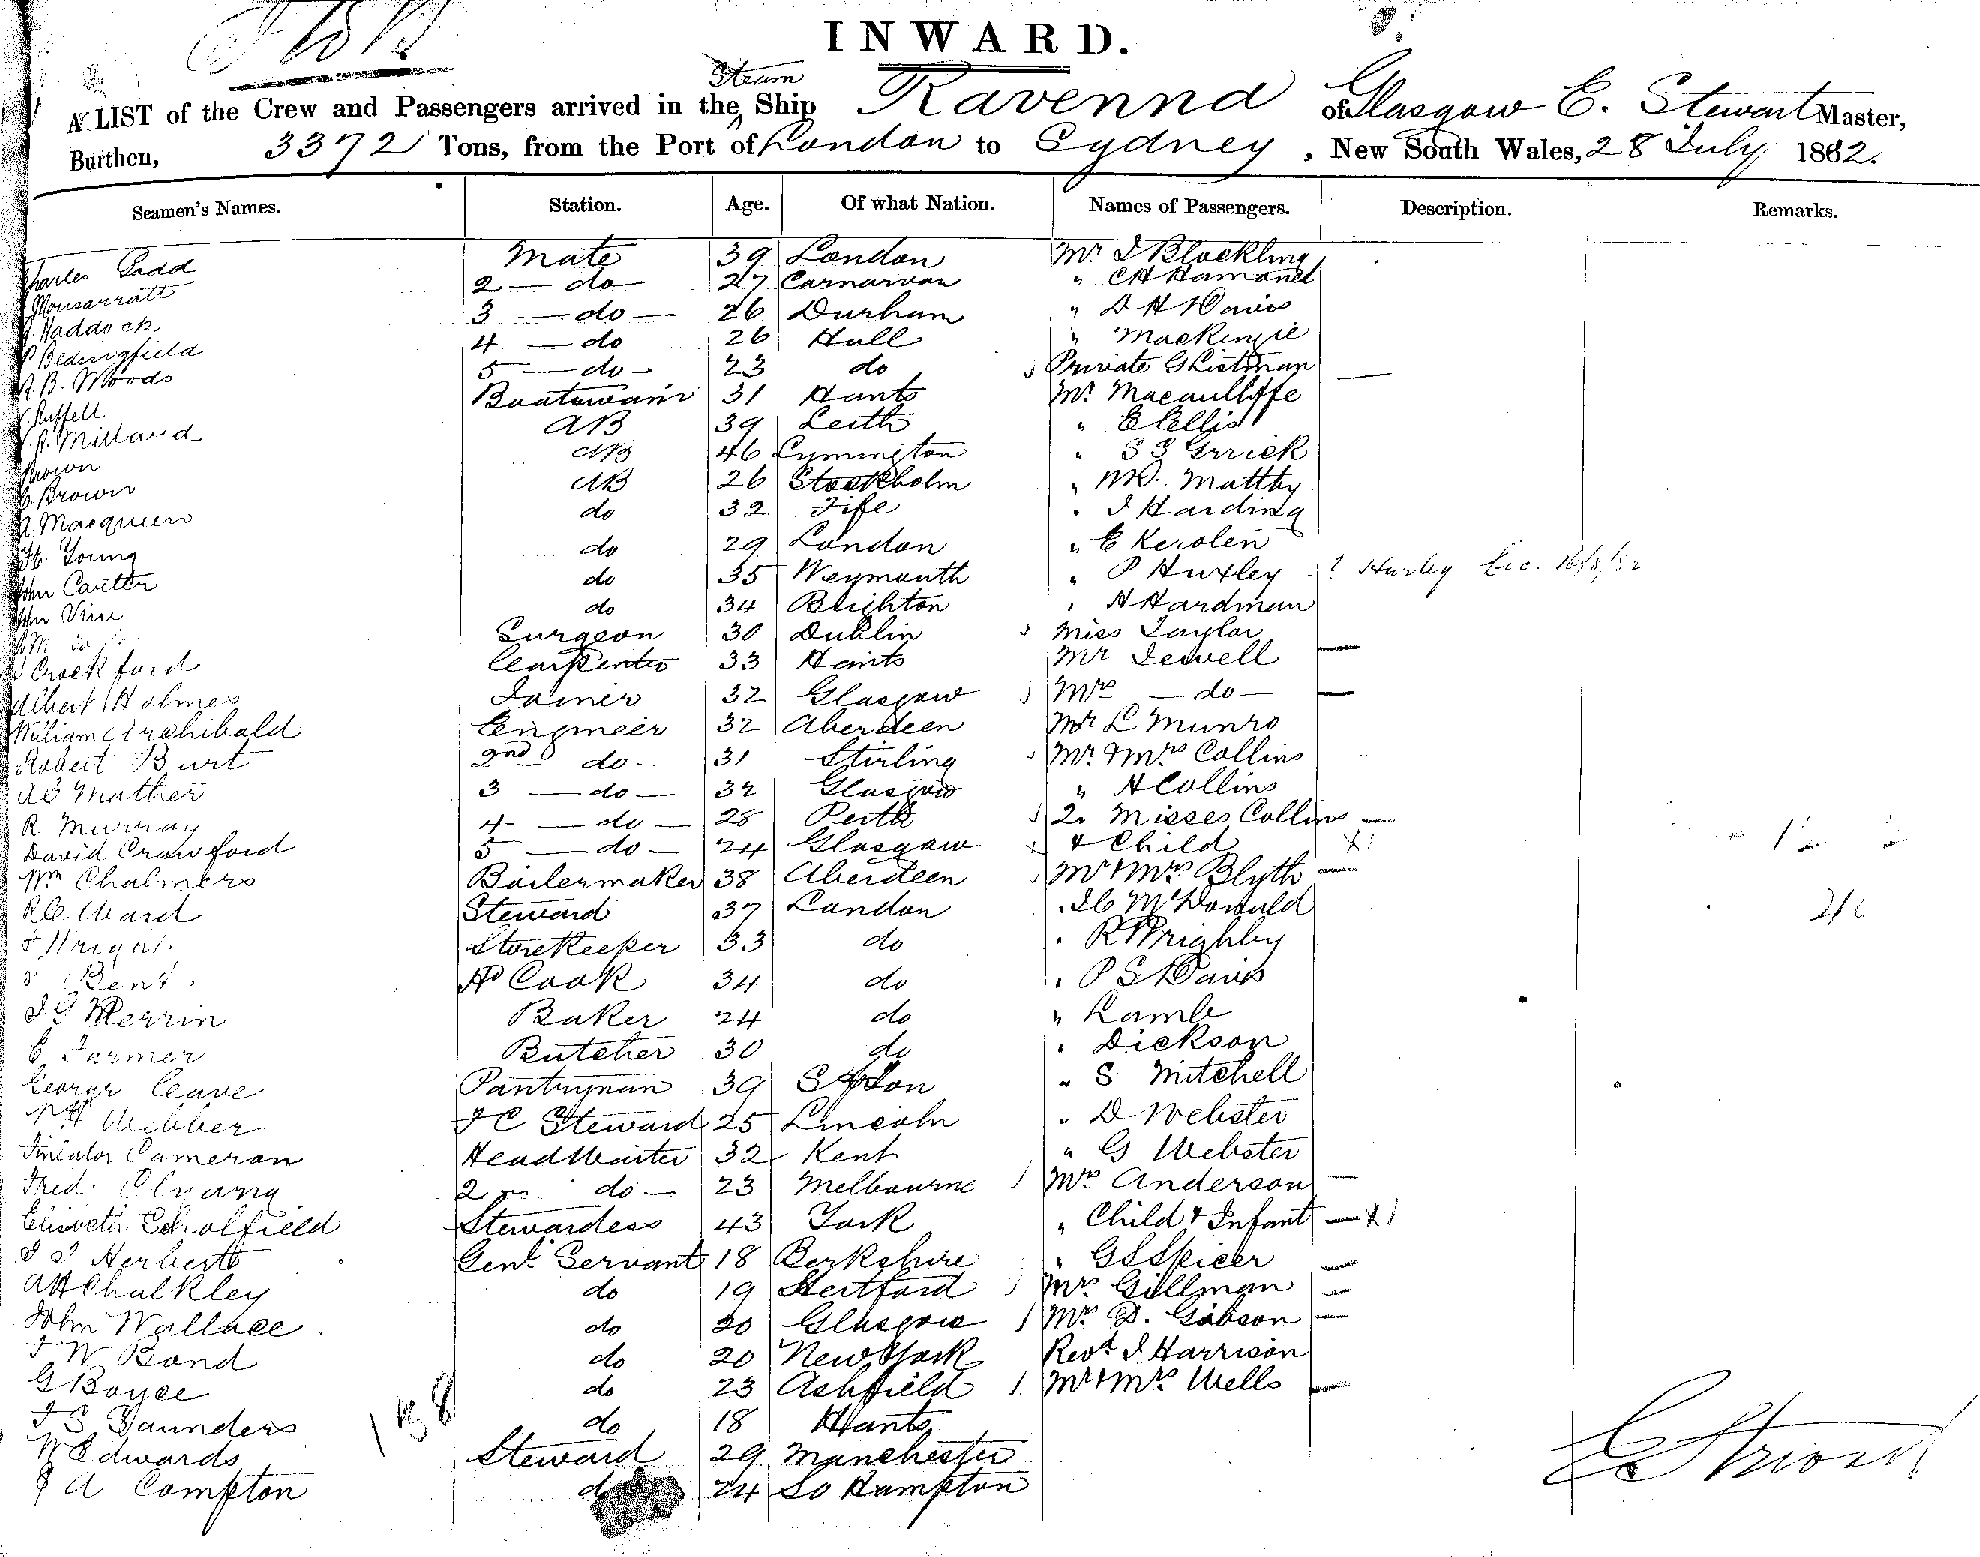 INWARD.
A LIST of the Crew and Passengers arrived in the Steam Ship Ravenna of Glasgow E. Stewart Master,
Burthen, 3372 Tons, from the Port of London to Sydney, New South Wales, 28 July 1882.
Seamen's Names. Station. Age. Of what Nation. Names of Passengers. Description. Remarks.
Charles Gadd Mate 39 London Mr J Blockling
Monsarratt 2 — do — 27 Carnarvon " C H Hamond
Haddock 3 — do — 26 Durham " D H Davis
P Bedingfield 4 — do 26 Hull " Mackenzie
A B. Woods 5 — do — 23 do Private G Listman —
Russell Boatswain 31 Hants Mr Macaulliffe
A. Millard AB 39 Leith " E Ellis
Brown AB 46 Lymington " S S Grrick
C. Brown AB 26 Stockholm " Maltby
A Macqueen do 32 Fife " J Harding
H. Young do 29 London " E Kerolen
John Carter do 35 Weymouth " P Huxley ? Hurley
John Vine do 34 Brighton " H Hardman
Surgeon 30 Dublin Miss Taylor
Crockford Carpenter 33 Hants Mr Jewell —
Albert Holmes Joiner 32 Glasgow Mrs — do — —
William Archibald Engineer 32 Aberdeen Mr L Munro
Robert Burt 2nd do 31 Stirling Mr & Mrs Collins
A C Mather 3 — do — 32 Glasgow " H Collins
R Murray 4 — do — 28 Perth 2 Misses Collins —
David Crawford 5 — do — 24 Glasgow & Child
Wm Chalmers Boilermaker 38 Aberdeen Mr & Mrs Blyth —
R C. Ward Steward 37 London " McDonald
Wright Storekeeper 33 do " R Wrighby
Bent Hd Cook 34 do " P S Davis
J G Merrin Baker 24 do " Lamb
C Farmer Butcher 30 do " Dickson
George Cleave Pantryman 39 " S Mitchell
W H Webber F C Steward 25 Lincoln " D Webster
Sinclair Cameron Head Waiter 32 Kent " G Webster
Fred 2 — do — 23 Melbourne Mrs Anderson —
Elisveth Scholfield Stewardess 43 York " Child & Infant —
J J Herbert Genl. Servant 18 Berkshire " G S Spicer —
A H Chalkley do 19 Hertford Mrs Gillman —
John Wallace do 20 Glasgow Mrs D. Gibson —
J W Bond do 20 New York Revd J Harrison
G Boyce do 23 Ashfield Mr & Mrs Wells —
J S Saunders do 18 Hants
W Edwards Steward 29 Manchester
J A Compton do 24 So Hampton
138